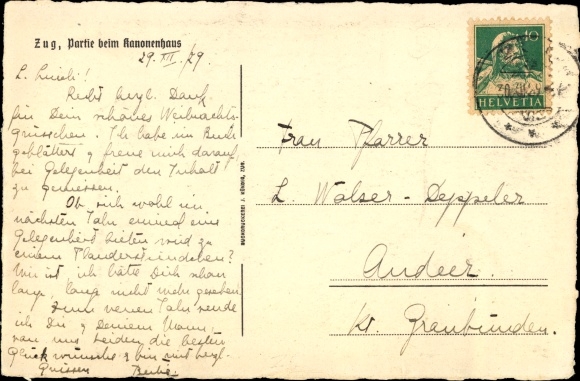 Zug, Partie beim Kanonenhaus
29. XII. 29.
L. Luisli!
Recht herzl. Dank
für Dein schönes Weihnachts-
grüsschen. Ich habe im Buch
geblättert & freue mich darauf,
bei Gelegenheit den Inhalt
zu geniessen.
Ob sich wohl im
nächsten Jahr einmal eine
Gelegenheit bieten wird zu
einem Plauderstündchen?
Mir ist, ich hätte Dich schon
lang, lang nicht mehr gesehen.
Zum neuen Jahr sende
ich Dir & Deinem Mann,
von uns beiden die besten
Glückwünsche & bin mit herzl.
Grüssen
BUCHDRUCKEREI J. KÜNDIG, ZUG
10
HELVETIA
Frau Pfarrer
L Walser-Deppeler
Andeer.
Kt. Graubünden.